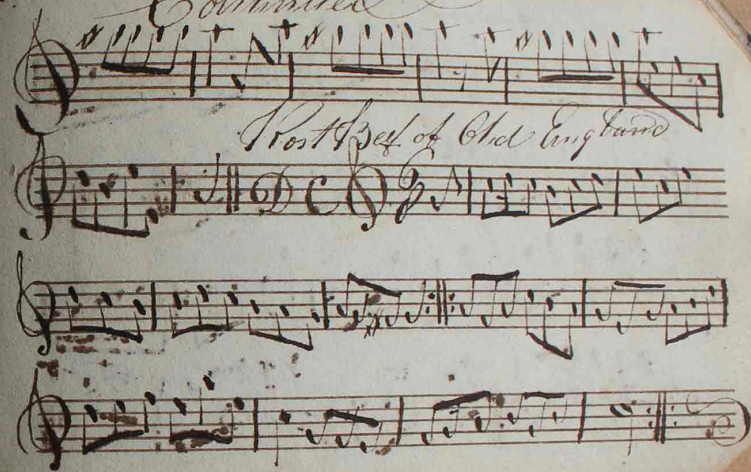 Continued
Rost Beef of Old England
D C